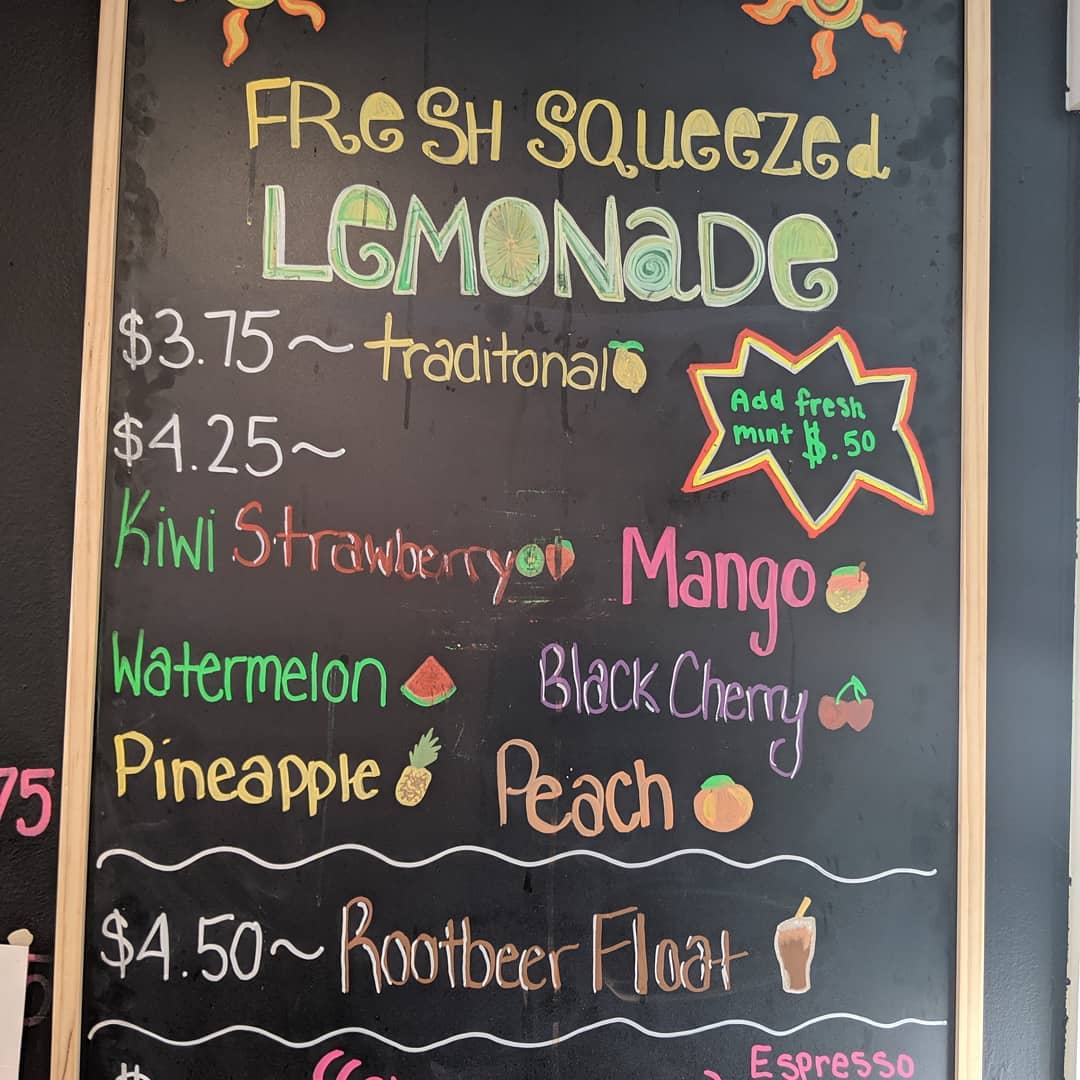 FResh SQueezed
LeMONaDe
$3.75~ traditonal
Add fresh
mint $.50
$4.25~
Kiwi Strawberry
Mango
Watermelon
Black Cherry
Pineapple
Peach
75
$4.50~ Rootbeer Float
Espresso